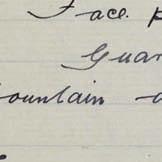 Face
Guar
ountain